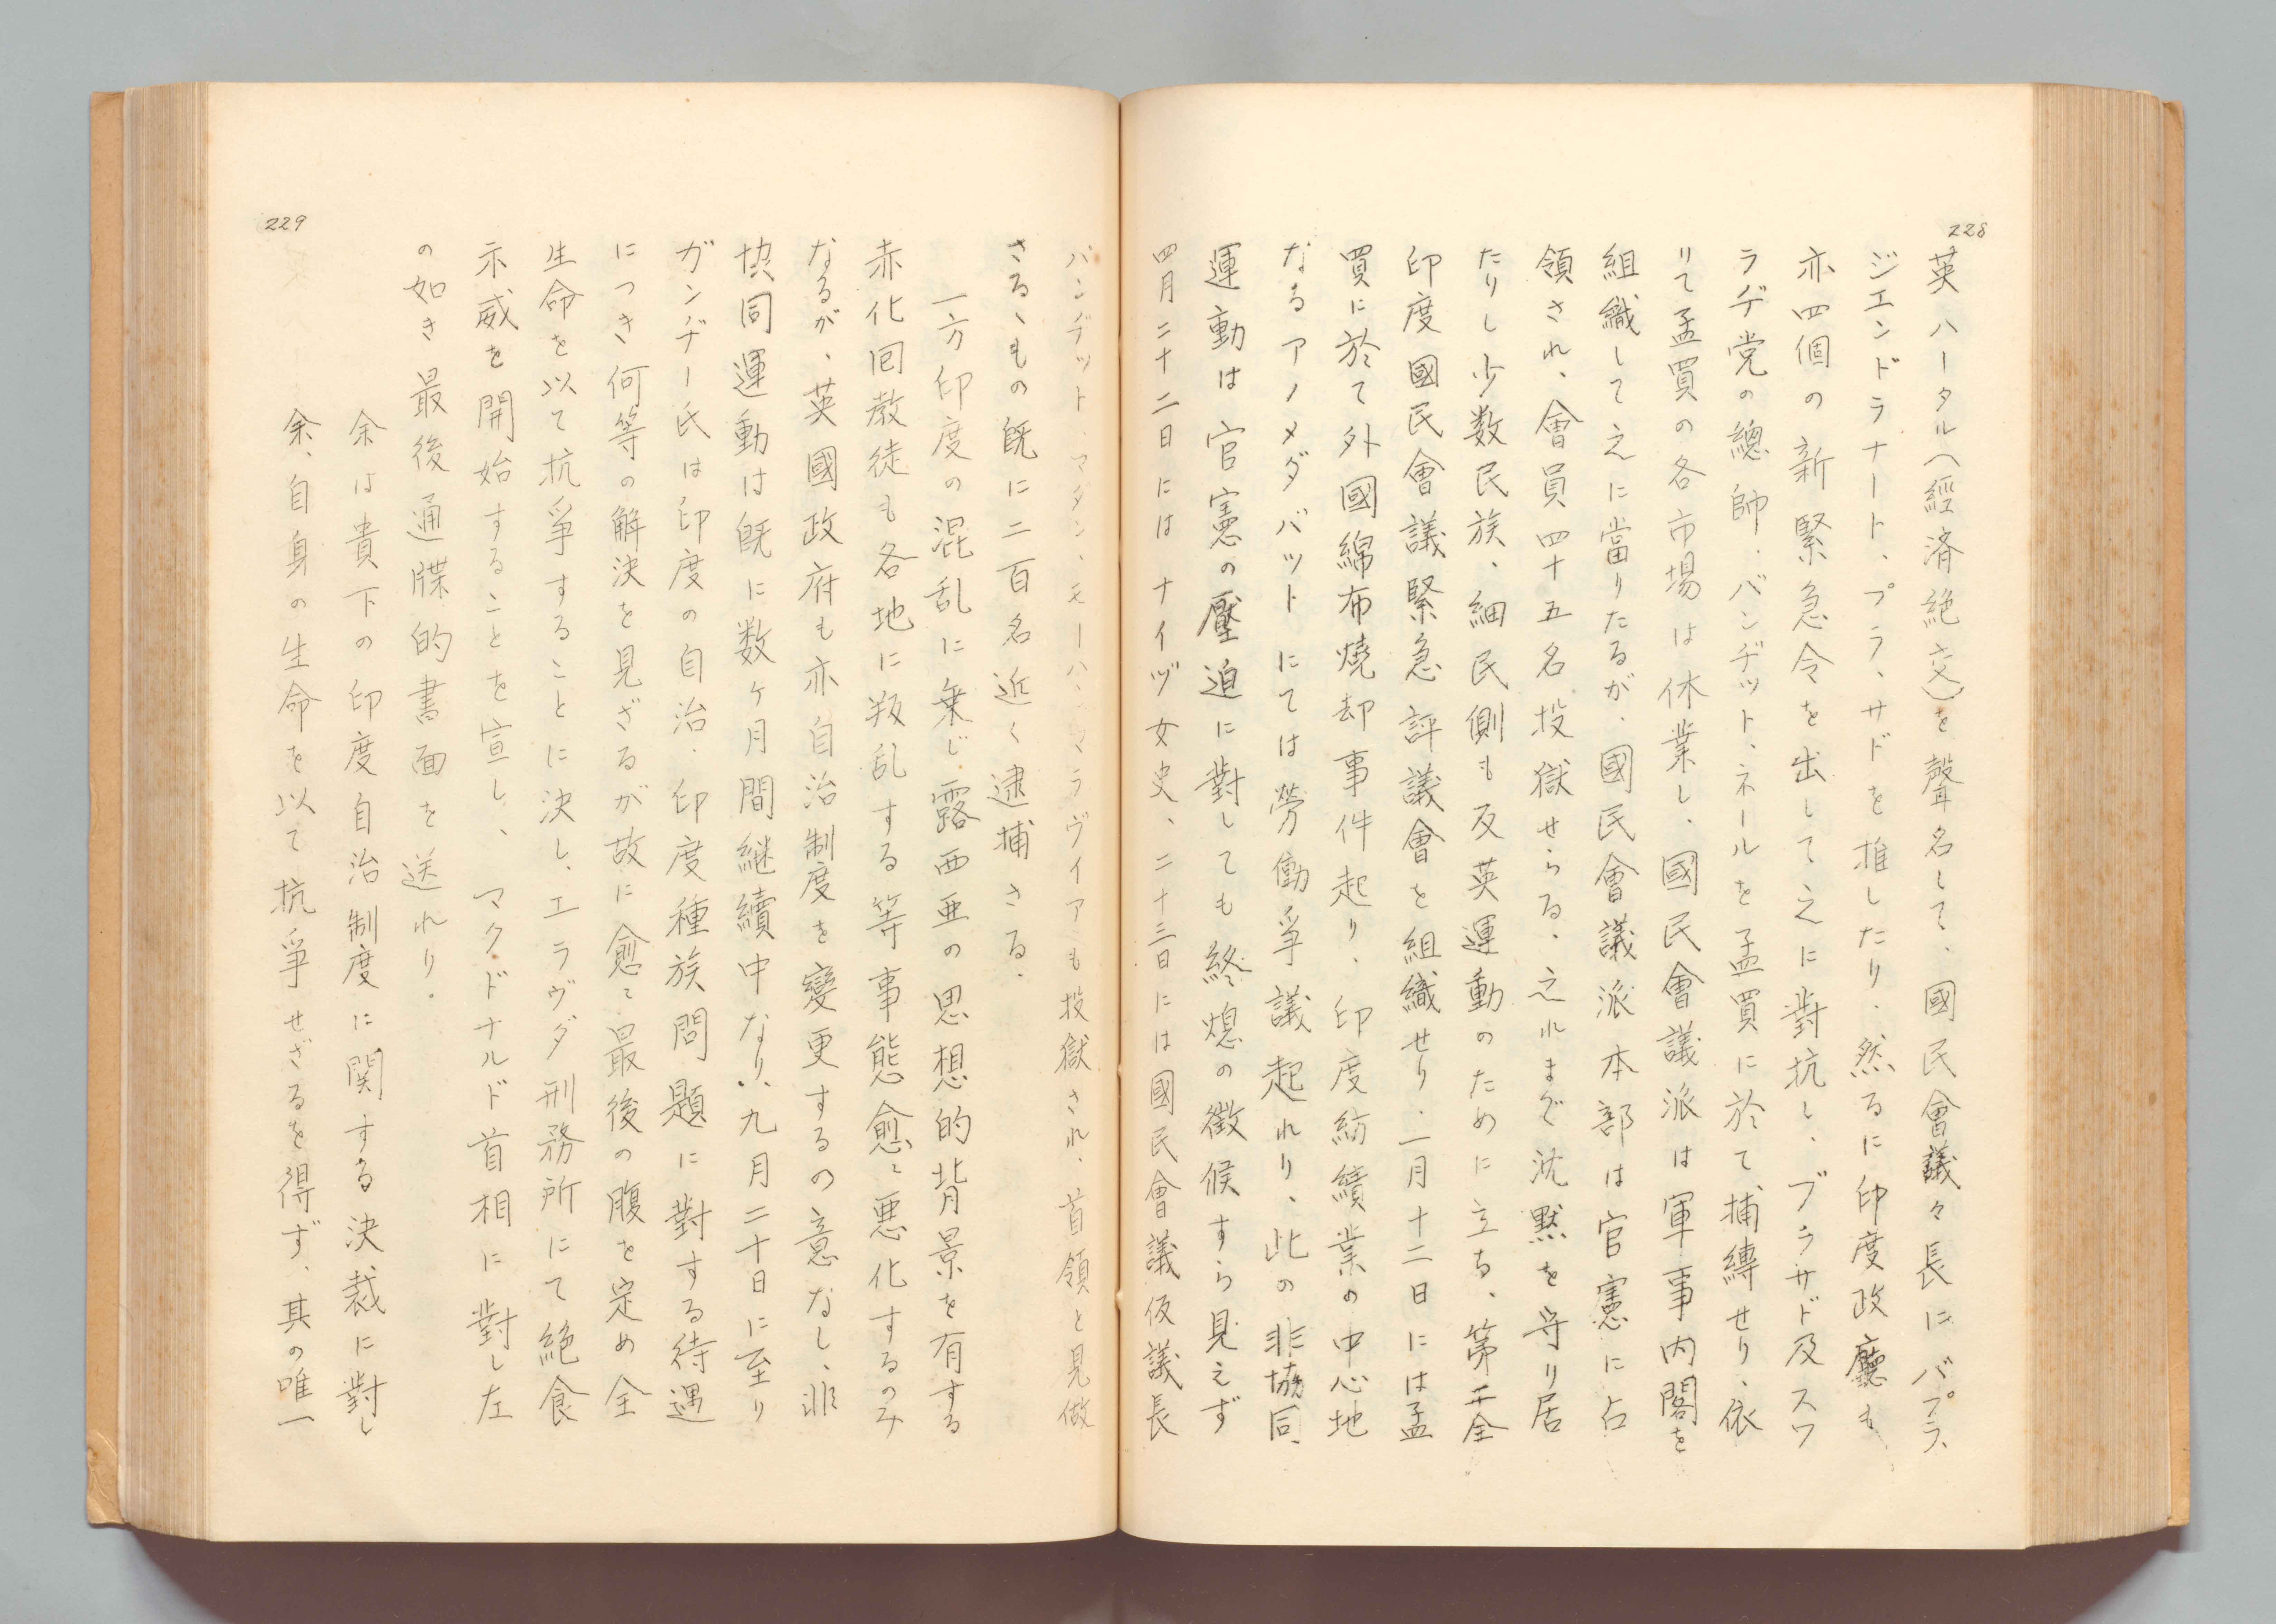 228
英ハータル（經済絶交）を聲名して、國民會議々長にバプラ、
ジエンドラナート、プラ、サドを推したり、然るに印度政廳も
亦四個の新緊急令を出して之に對抗し、ブラサド及スワ
ラヂ党の總帥、バンヂット、ネールを孟買に於て捕縛せり、依
りて孟買の各市場は休業し、國民會議派は軍事内閣を
組織して之に當りたるが、國民會議派本部は官憲に占
領され、會員四十五名投獄せらる、之れまで沈黙を守り居
たりし少数民族、細民側も反英運動のために立る、第二全
印度國民會議緊急評議會を組織せり、一月十二日には孟
買に於て外國綿布燒却事件起り、印度紡績業の中心地
なるアノメダバットにては勞働爭議起れり、此の非協同、
運動は官憲の壓迫に對しても終熄の徴候すら見えず
四月二十二日にはナイヅ女史、二十三日には國民會議仮議長
229
バンヂット、マダン、モーハン、マラヴイアも投獄され、首領と見做
さるゝもの既に二百名近く逮捕さる、
一方印度の混乱に乗じ露西亜の思想的背景を有する
赤化回教徒も各地に叛乱する等事態愈々悪化するのみ
なるが、英國政府も亦自治制度を變更するの意なし、非
協同運動は既に数ヶ月間継續中なり、九月二十日に至り
ガンヂー氏は印度の自治、印度種族問題に對する待遇
につき何等の解決を見ざるが故に愈々最後の腹を定め全
生命を以て抗爭することに決し、エラヴダ刑務所にて絶食
示威を開始することを宣し、マクドナルド首相に對し左
の如き最後通牒的書面を送れり、
余は貴下の印度自治制度に関する決裁に對し
余、自身の生命を以て抗爭せざるを得ず、其の唯一